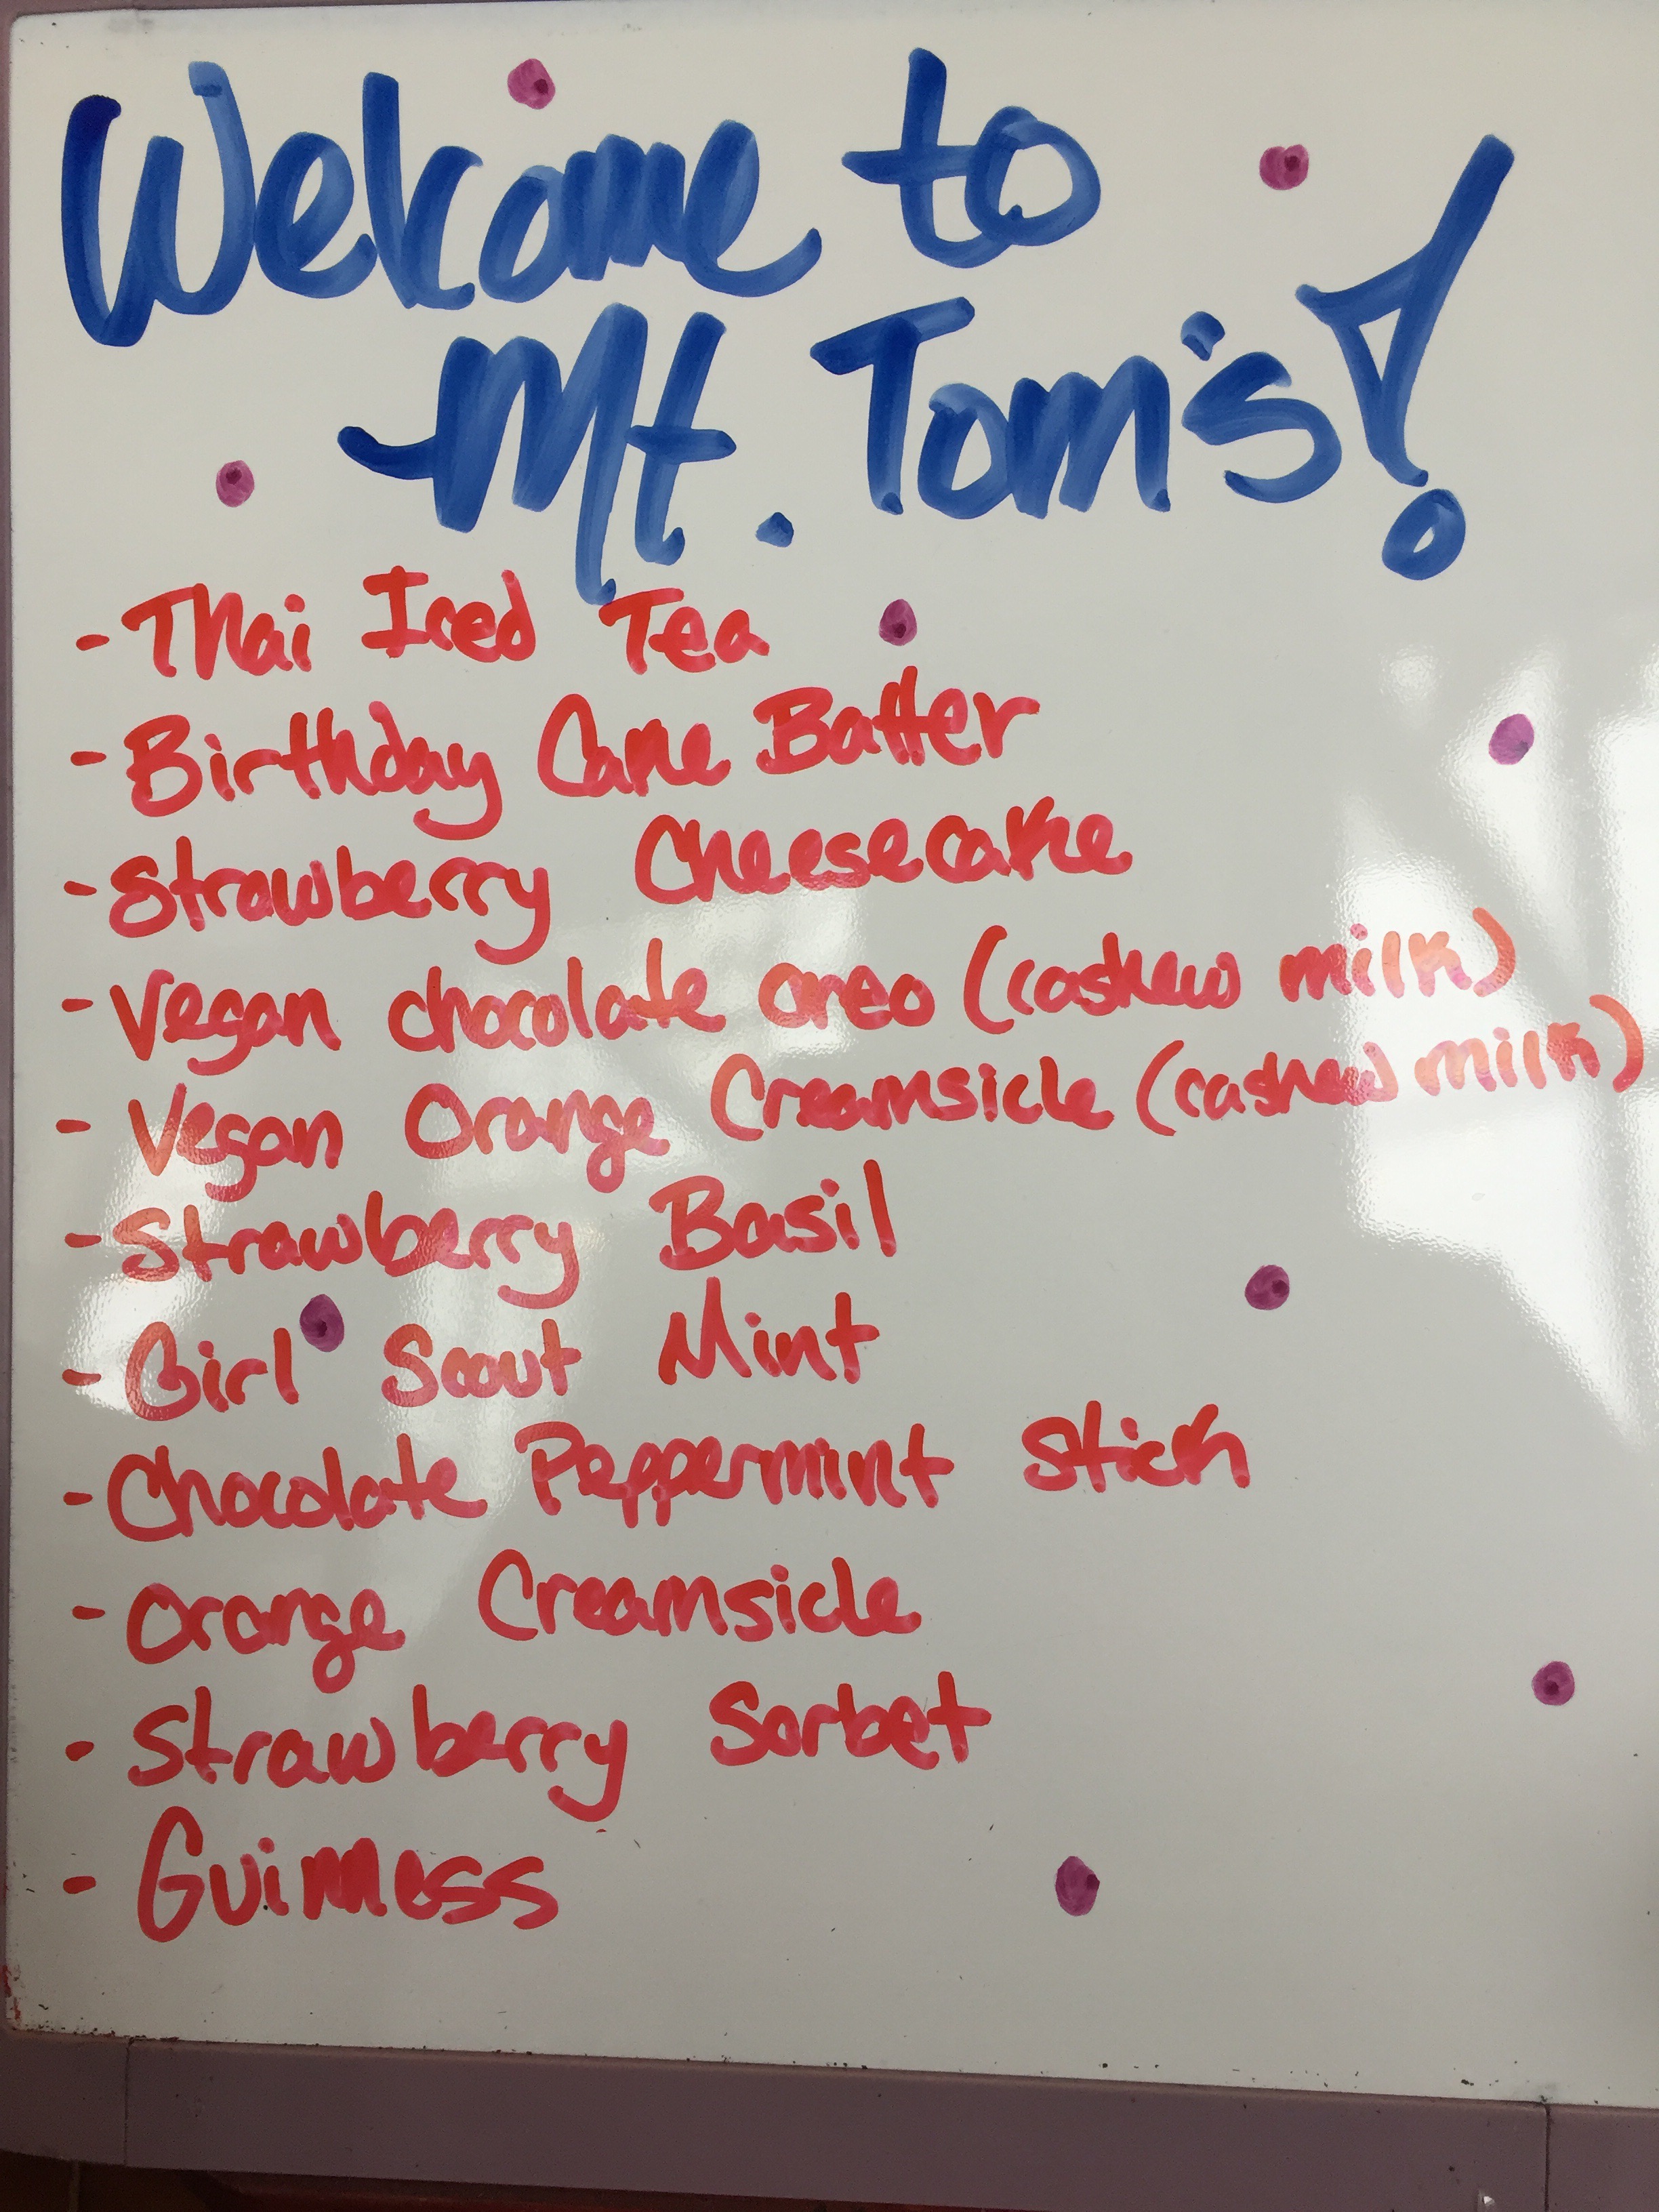 Welcome to
Mt. Tom's!
- Thai Iced Tea
- Birthday Cake Batter
- Strawberry Cheesecake
- Vegan chocolate oreo (cashew milk)
- Vegan Orange Creamsicle (cashew milk)
- Strawberry Basil
- Girl Scout Mint
- Chocolate Peppermint Stick
- Orange Creamsicle
- Strawberry Sorbet
- Guinness